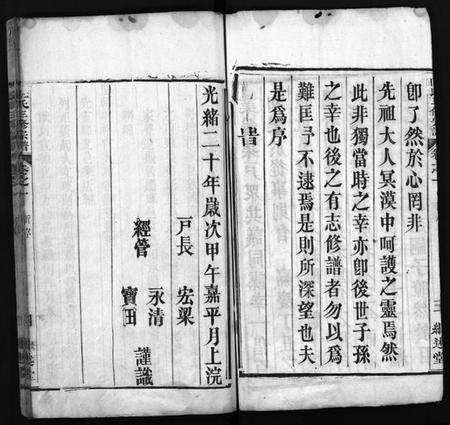 卽了然於心罔非
先祖大人冥漠中呵護之靈焉然
此非獨當時之幸亦卽後世子孫
之幸也後之有志修譜者勿以爲
難匡予不逮焉是則所深望也夫
是爲序
三 繼述堂
旹
光緒二十年歲次甲午嘉平月上浣
戸長 宏梁
經管 永清 寶田 謹識